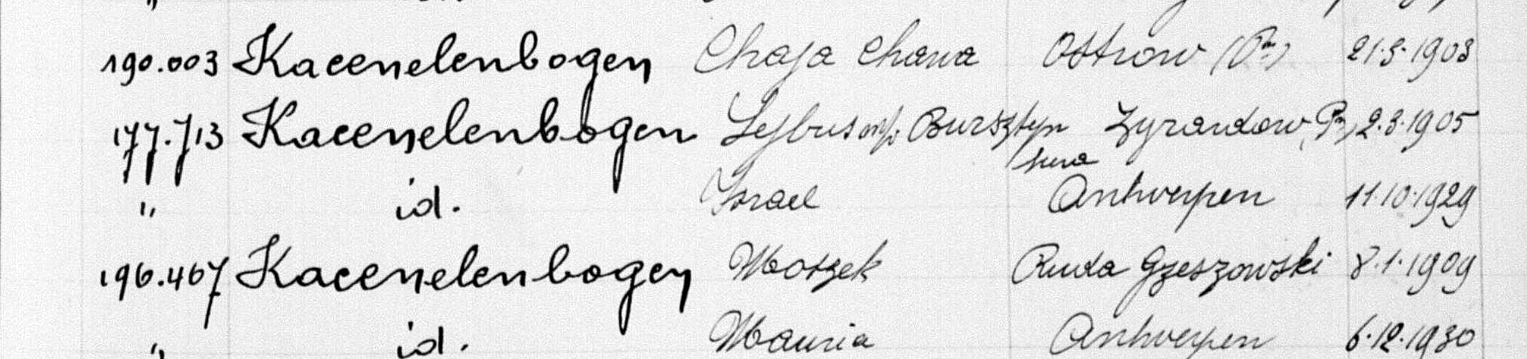 190.003 Kacenelenbogen Chaja Chawa Ostrow (Pn) 21.3.1903
177.713 Kacenelenbogen Lejbus Bursztyn Zyrardow (Pn) 2.3.1905
" id. Israel Antwerpen 11.10.1929
196.467 Kacenelenbogen Moszek Ruda Gzeszowski 8.1.1909
" id. Mauria Antwerpen 6.12.1930